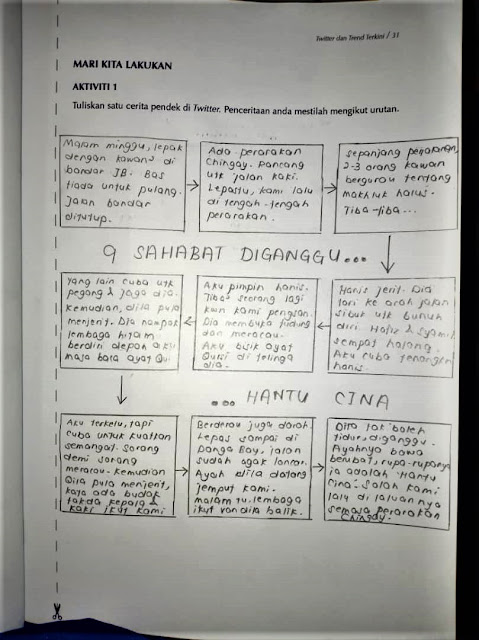 Twitter dan Trend Terkini / 31
MARI KITA LAKUKAN
AKTIVITI 1
Tuliskan satu cerita pendek di Twitter. Penceritaan anda mestilah mengikut urutan.
Malam minggu, lepak
dengan kawan² di
bandar JB. Bas
tiada untuk pulang.
Jalan bandar
ditutup.
Ada perarakan
Chingay. Pancang
utk jalan kaki.
Lepastu, kami lalu
di tengah-tengah
perarakan.
Sepanjang perjalanan,
2-3 orang kawan
bergurau tentang
makhluk halus.
Tiba-tiba...
9 SAHABAT DIGANGGU...
Hanis jerit. Dia
lari ke arah jalan
sibuk utk bunuh
diri. Hafiz & Syamil
sempat halang.
Aku cuba tenangkan
hanis.
Aku pimpin hanis.
Tiba² seorang lagi
kwn kami pengsan.
Dia membuka tudung
dan meracau.
Aku bisik ayat
Qursi di telinga
dia.
Yang lain cuba utk
pegang & jaga dia.
Kemudian, dila pula
menjerit. Dia nampak
lembaga hitam
berdiri depan aku
masa baca ayat Qursi
... HANTU CINA
Aku terkelu, tapi
cuba untuk kuatkan
semangat. Sorang
demi sorang
meracau. Kemudian
Dila pula menjerit,
kata ada budak
takda kepala &
kaki ikut kami
Berderau juga darah.
Lepas sampai di
Danga Bay, jalan
sudah agak lancar.
Ayah dila datang
jemput kami.
malam tu, lembaga
ikut van dila balik.
Dila tak boleh
tidur, diganggu.
Ayahnya bawa
berubat, rupa-rupanya
ia adalah "Hantu
Cina". Salah kami
lalu di laluannya
semasa perarakan
Chingay.